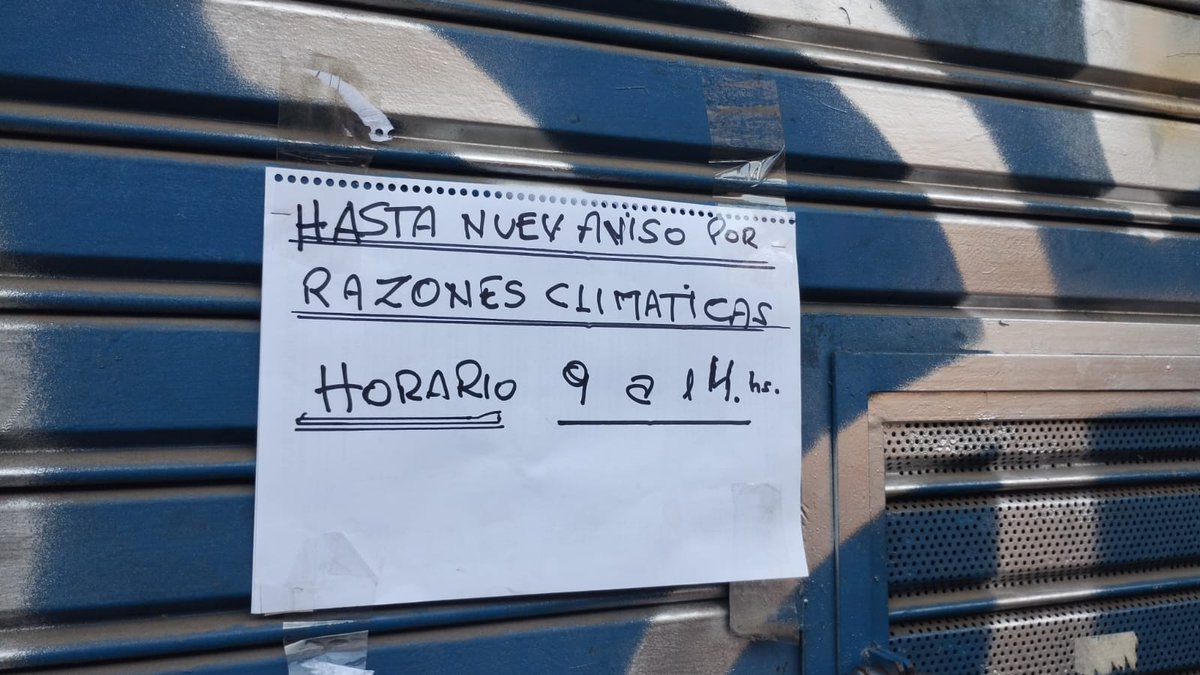 HASTA NUEV AVISO POR
RAZONES CLIMATICAS
HORARIO 9 a 14. hs.